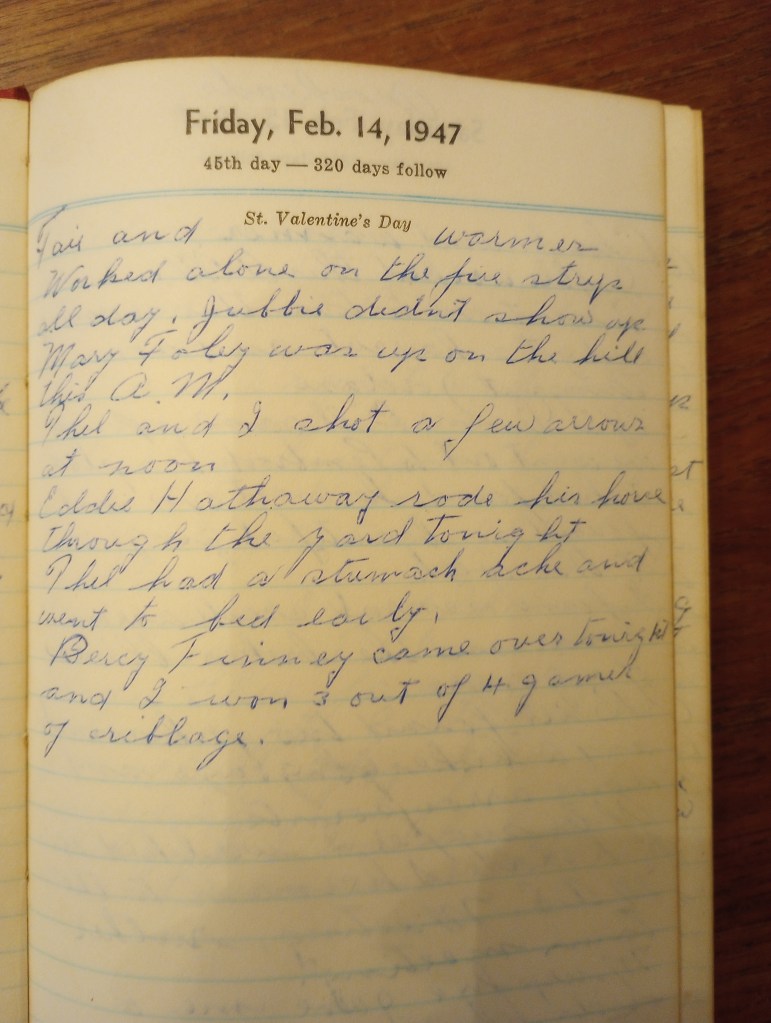 Friday, Feb. 14, 1947
45th day — 320 days follow
St. Valentine's Day
Fair and warmer
Worked alone on the fire strip
all day. Jubbie didn't show up
Mary Foley was up on the hill
this A.M.
Thel and I shot a few arrows
at noon
Eddie Hathaway rode his horse
through the yard tonight
Thel had a stumach ache and
went to bed early.
Percy Finney came over tonight
and I won 3 out of 4 games
of cribbage.